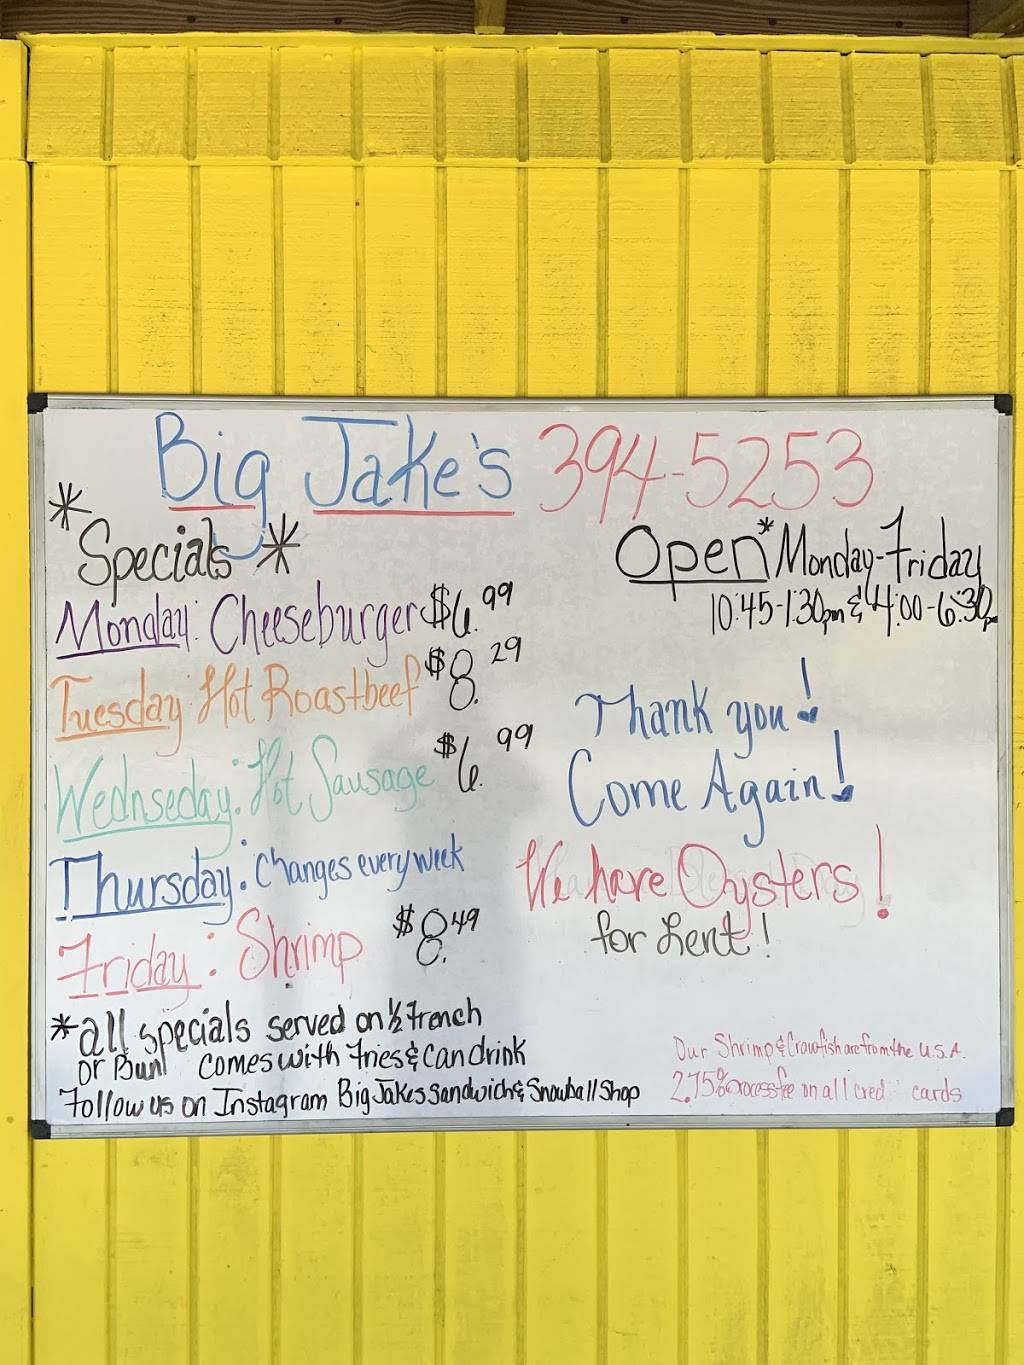 Big Jake's 394-5253
* Specials *
Open* Monday-Friday
10:45-1:30pm & 4:00-6:30pm
Monday: Cheeseburger $6.99
Tuesday: Hot Roastbeef $8.29
Wednseday: Hot Sausage $6.99
Thursday: Changes every week
Friday: Shrimp $8.49
Thank you!
Come Again!
We have Oysters!
for Lent!
*all specials served on 1/2 French
or Bun! comes with fries & can drink
Follow us on Instagram Big Jakes Sandwich & Snowball Shop
Our Shrimp & Crawfish are from the U.S.A.
2.75% process fee on all cred cards